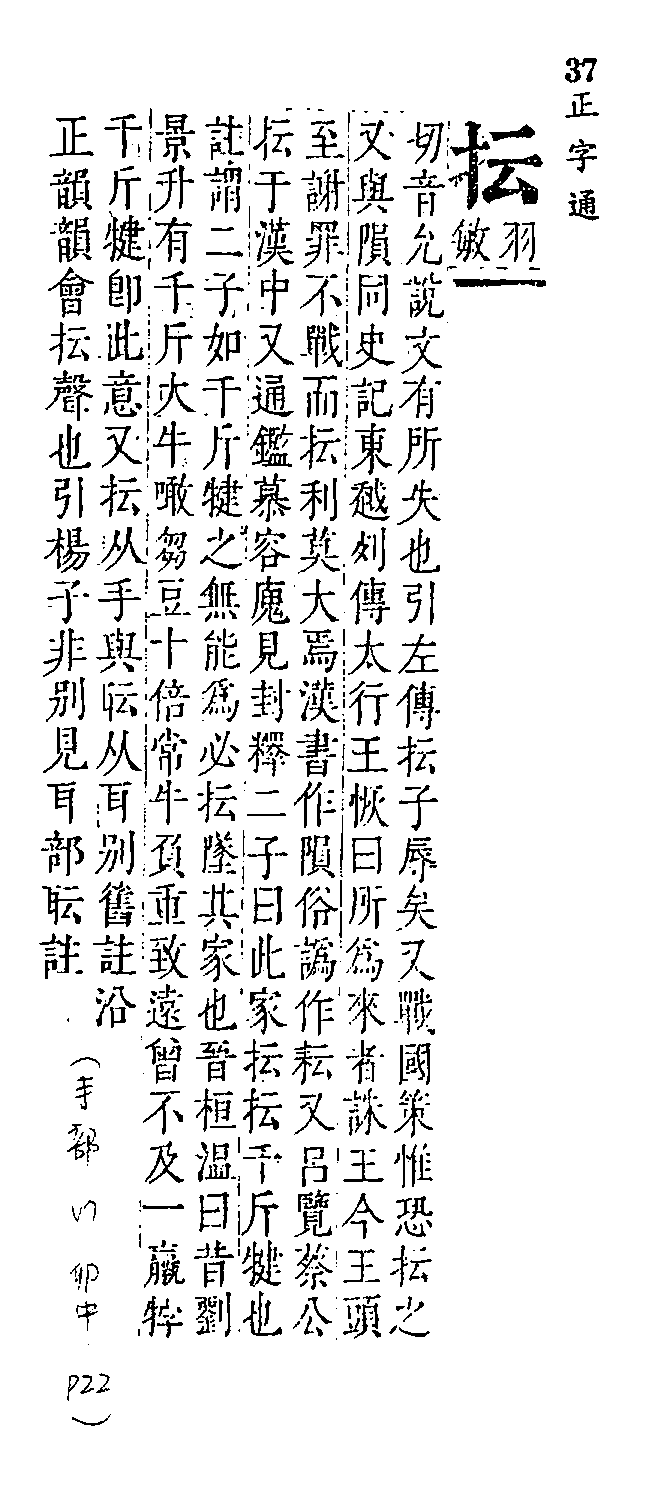 37
正字通
抎
羽敏
切音允說文有所失也引左傳抎子辱矣又戰國策惟恐抎之
又與隕同史記東越列傳太行王恢曰所爲來者誅王今王頭
至謝罪不戰而抎利莫大焉漢書作隕俗譌作耘又呂覽蔡公
抎于漢中又通鑑慕容廆見封釋二子曰此家抎抎千斤犍也
註謂二子如千斤犍之無能爲必抎墜其家也晉桓温曰昔劉
景升有千斤大牛噉芻豆十倍常牛負重致遠曾不及一羸牸
千斤犍卽此意又抎从手與耺从耳別舊註沿
正韻韻會抎聲也引楊子非別見耳部耺註
(手部 卯中 P22)